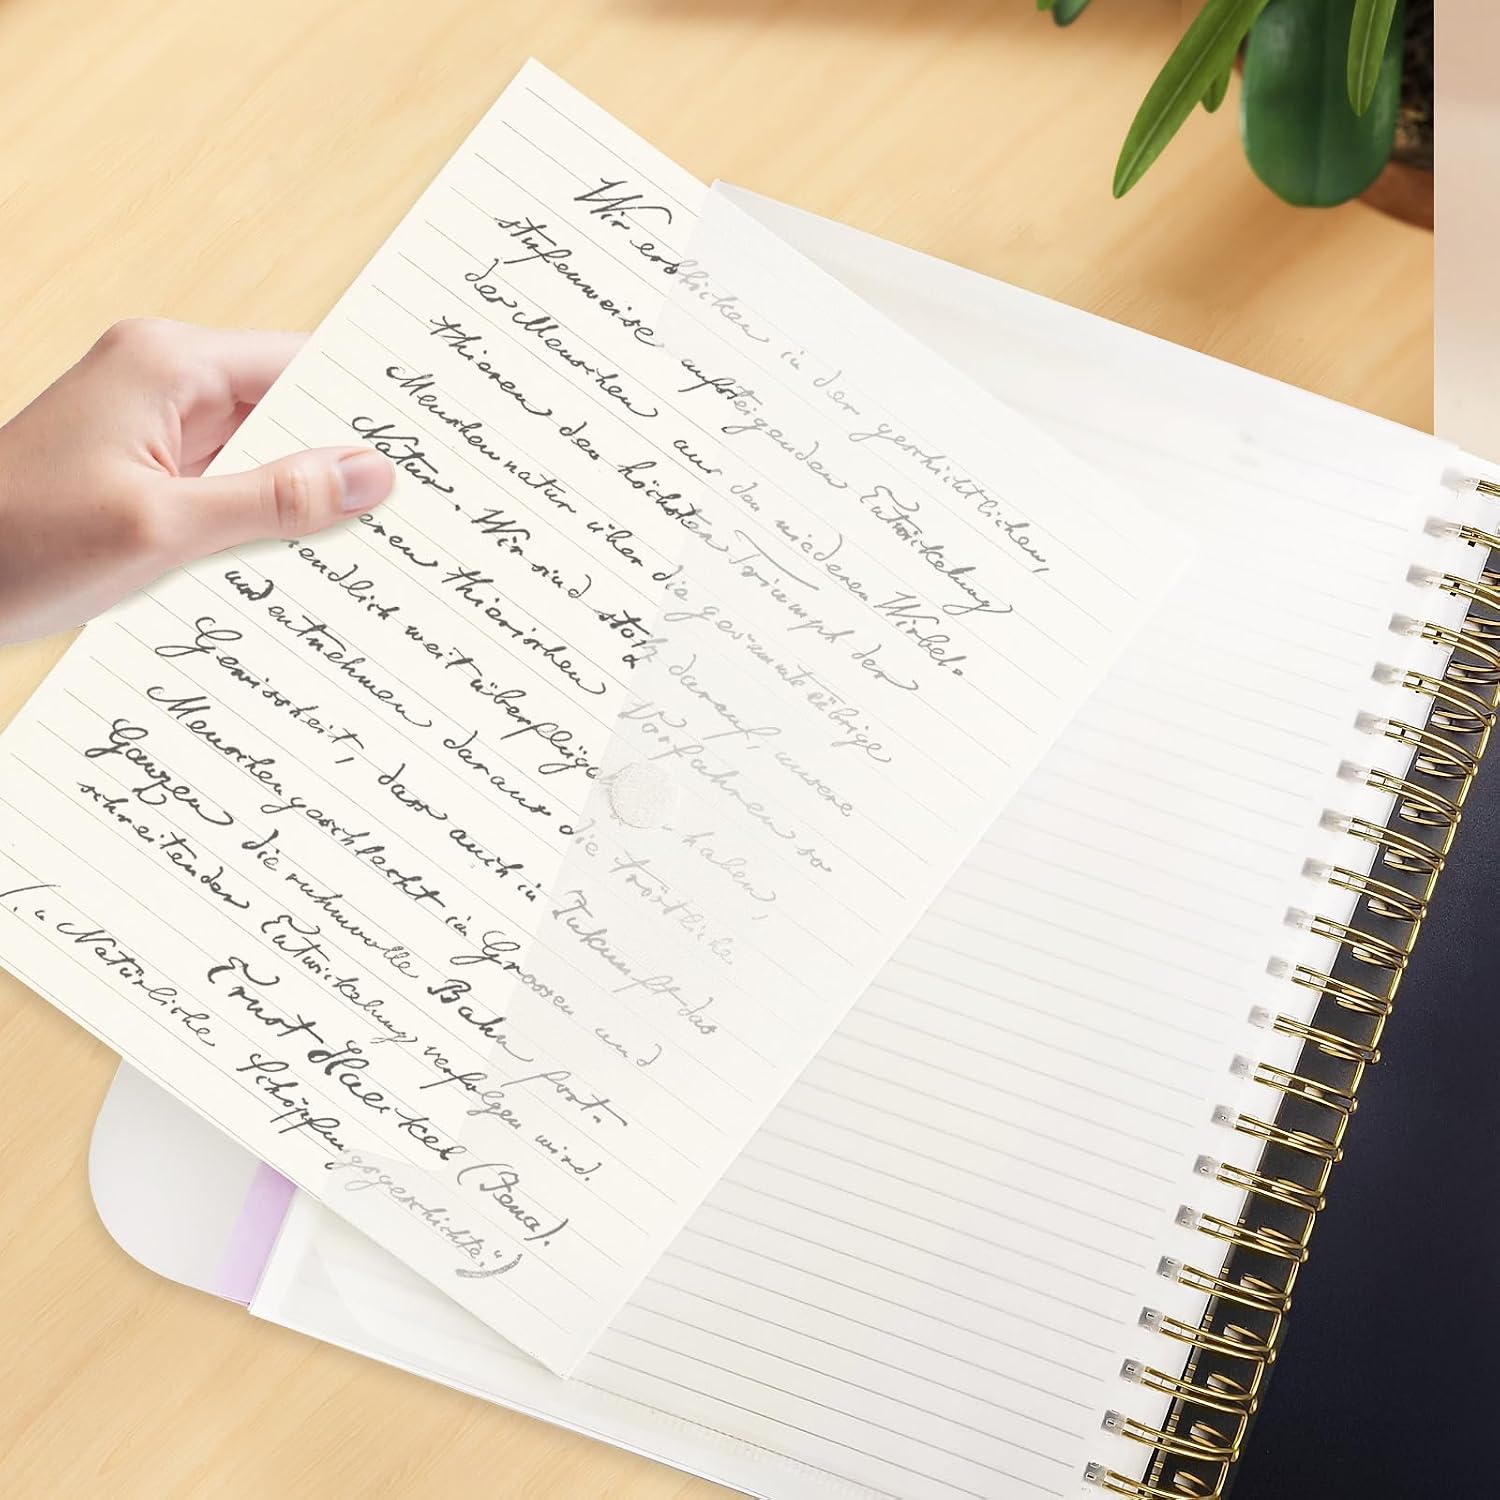 Wir erblicken in der geschichtlichen,
stufenweise aufsteigenden Entwickelung
der Menschen aus den niederen Wirbel-
thieren den höchsten Triumph der
Menschennatur über die gesammte übrige
Natur. Wir sind stolz darauf, unsere
eren thierischen Vorfahren so
endlich weit überflügelt haben,
und entnehmen daraus die tröstliche
Gewissheit, dass auch in Zukunft das
Menschengeschlecht im Grossen und
Ganzen die ruhmvolle Bahn fort-
schreitender Entwickelung verfolgen wird.
Ernst Haeckel (Jena).
(. u Natürliche Schöpfungsgeschichte.")